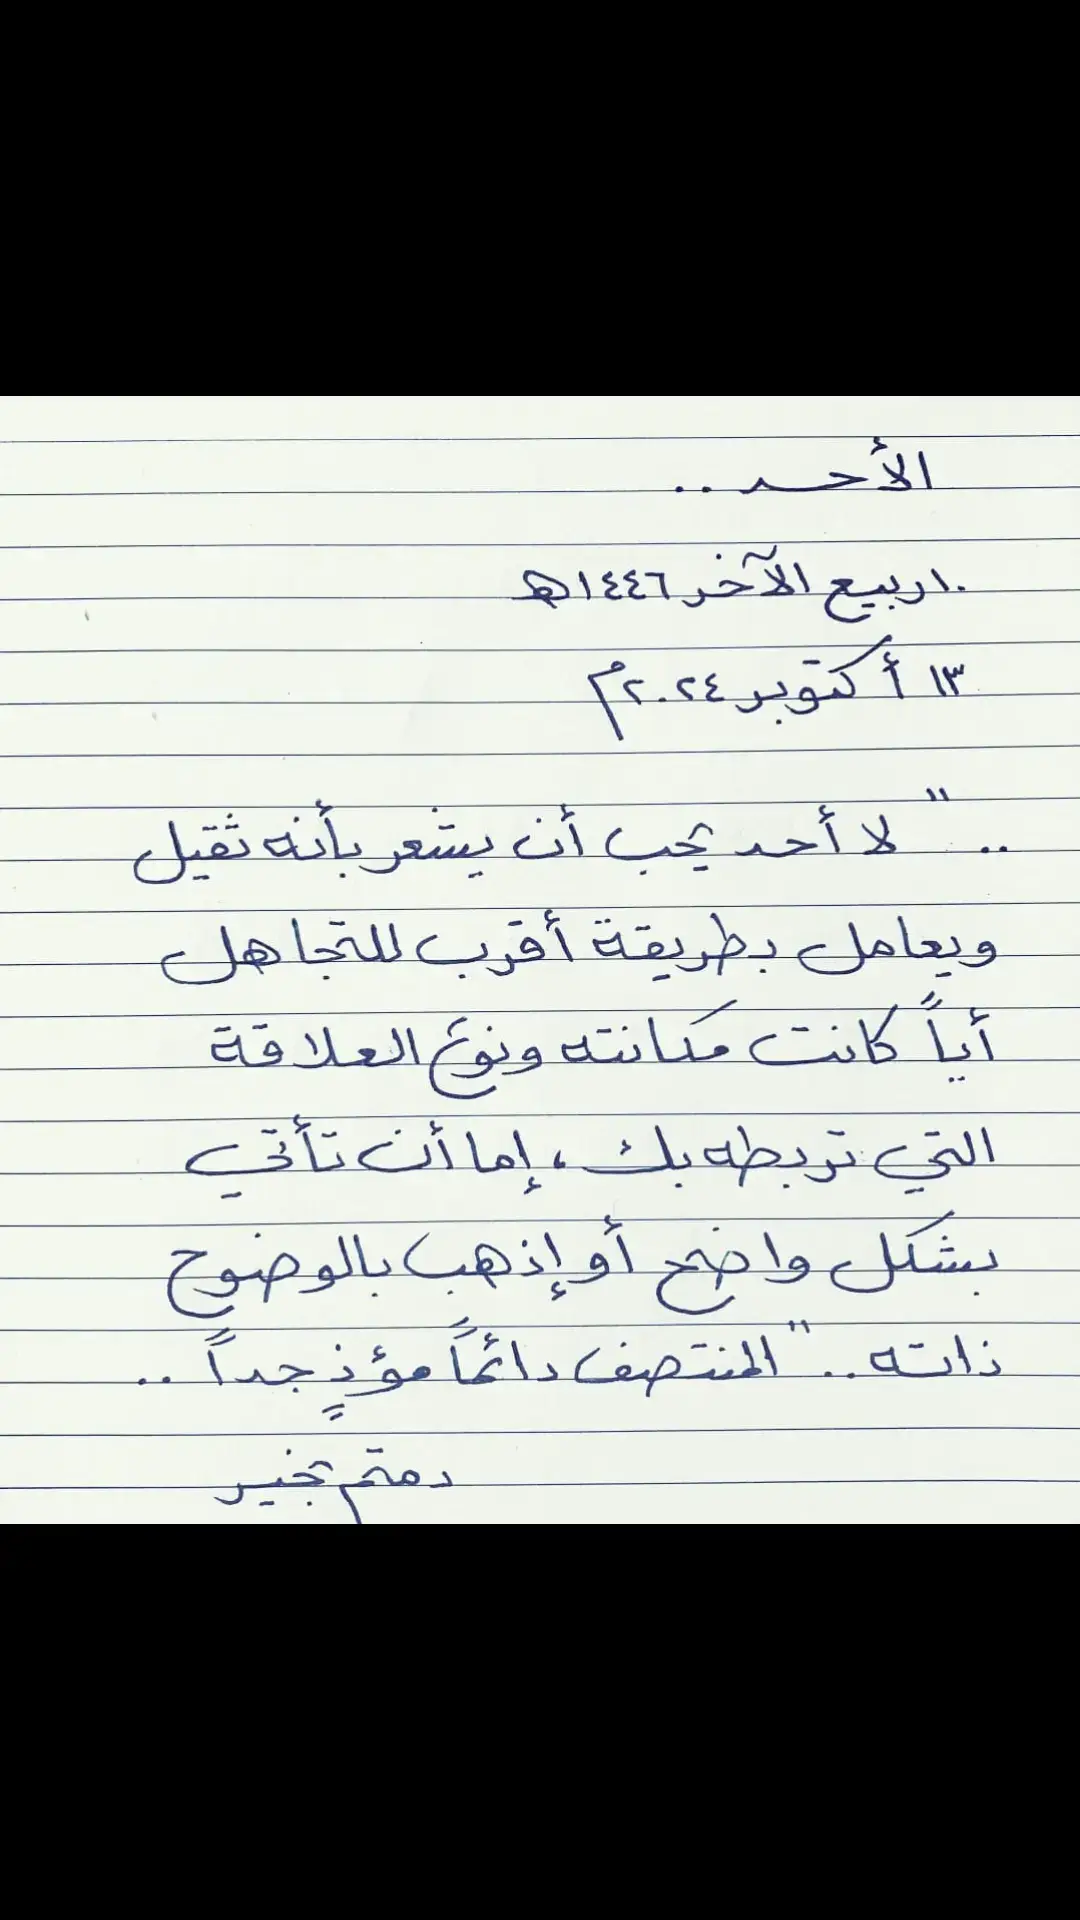 الأحد ..
١٠ ربيع الآخر ١٤٤٦هـ
١٣ أكتوبر ٢٠٢٤م
.. " لا أحد يحب أن يشعر بأنه ثقيل
ويعامل بطريقة أقرب للتجاهل
أياً كانت مكانته ونوع العلاقة
التي تربطه بك ، إما أن تأتي
بشكل واضح أو إذهب بالوضوح
ذاته .. " المنتصف دائماً مؤذٍ جداً ..
دمتم بخير